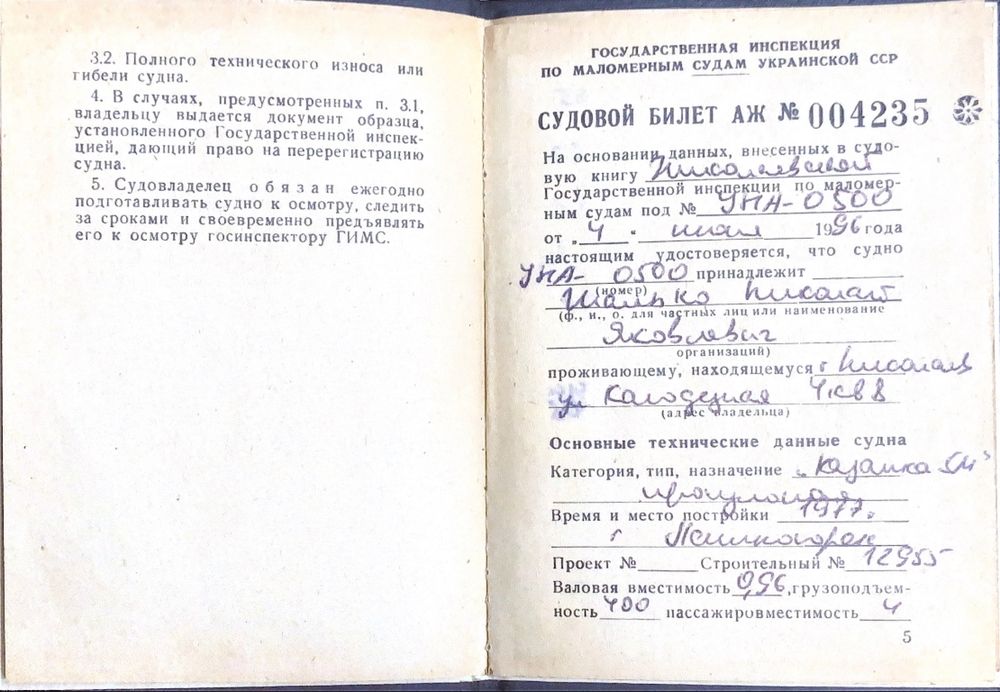 3.2. Полного технического износа или
гибели судна.
4. В случаях, предусмотренных п. 3.1,
владельцу выдается документ образца,
установленного Государственной инспек-
цией, дающий право на перерегистрацию
судна.
5. Судовладелец обязан ежегодно
подготавливать судно к осмотру, следить
за сроками и своевременно предъявлять
его к осмотру госинспектору ГИМС.
ГОСУДАРСТВЕННАЯ ИНСПЕКЦИЯ
ПО МАЛОМЕРНЫМ СУДАМ УКРАИНСКОЙ ССР
СУДОВОЙ БИЛЕТ АЖ № 004235
На основании данных, внесенных в судо-
вую книгу Николаевской
Государственной инспекции по маломер-
ным судам под № УНА-0500
от „4" июля 1996 года
настоящим удостоверяется, что судно
УНА- 0500 принадлежит
(номер)
Николай
(ф., и., о. для частных лиц или наименование
Яковлевич
организаций)
проживающему, находящемуся г Николаев
ул Колодезная 4кв 8
(адрес владельца)
Основные технические данные судна
Категория, тип, назначение „Казанка 5М"
прогулочная
Время и место постройки 1977г.
г
Проект № Строительный № 12955
Валовая вместимость 0,96, грузоподъем-
ность 400 пассажировместимость 4
5